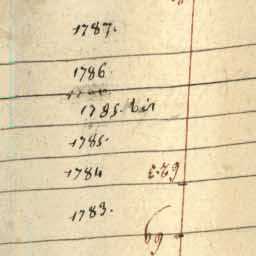 1787.
1786.
1785. bis
1785.
1784
1783.